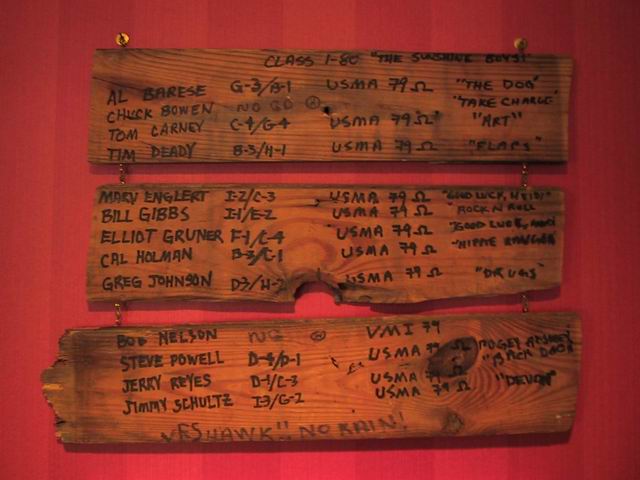 CLASS 1-80 "THE SUNSHINE BOYS!"
AL BARESE G-3/B-1 USMA 79 Ω "THE DOG"
CHUCK BOWEN NO GO ® USMA 79 Ω "TAKE CHARGE"
TOM CARNEY C-4/G-4 USMA 79 Ω "ART"
TIM DEADY B-3/H-1 USMA 79 Ω "FLAPS"
MARV ENGLERT I-2/C-3 USMA 79 Ω "GOOD LUCK, HEIDI"
BILL GIBBS I-1/E-2 USMA 79 Ω "ROCK N ROLL"
ELLIOT GRUNER F-1/C-4 USMA 79 Ω "GOOD LUCK,
CAL HOLMAN B-3/C-1 USMA 79 Ω "HIPPIE RANGER"
GREG JOHNSON D3/H- USMA 79 Ω "DRUGS"
BOB NELSON NG ® VMI 79
STEVE POWELL D-4/D-1 USMA 79 Ω "BACK DOOR"
JERRY REYES D-1/C-3 USMA 79 Ω "DEVON"
JIMMY SCHULTZ I-3/G-2 USMA 79 Ω
HAWK!! NO RAIN!